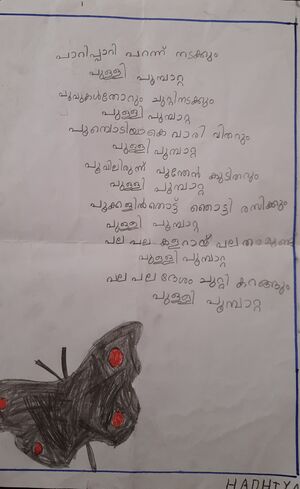 പാറിപ്പാറി പറന്ന് നടക്കും
പുള്ളി പൂമ്പാറ്റ
പൂവുകൾതോറും ചുറ്റിനടക്കും
പുള്ളി പൂമ്പാറ്റ
പൂമ്പൊടിയാകെ വാരി വിതറും
പുള്ളി പൂമ്പാറ്റ
പൂവിലിരുന്ന് പൂന്തേൻ
പുള്ളി പൂമ്പാറ്റ
ഞൊട്ടി രസിക്കും
പുള്ളി പൂമ്പാറ്റ
പല പല കളറായ് പല
പുള്ളി പൂമ്പാറ്റ
പല പല ദേശം ചുറ്റി കറങ്ങും
പുള്ളി പൂമ്പാറ്റ